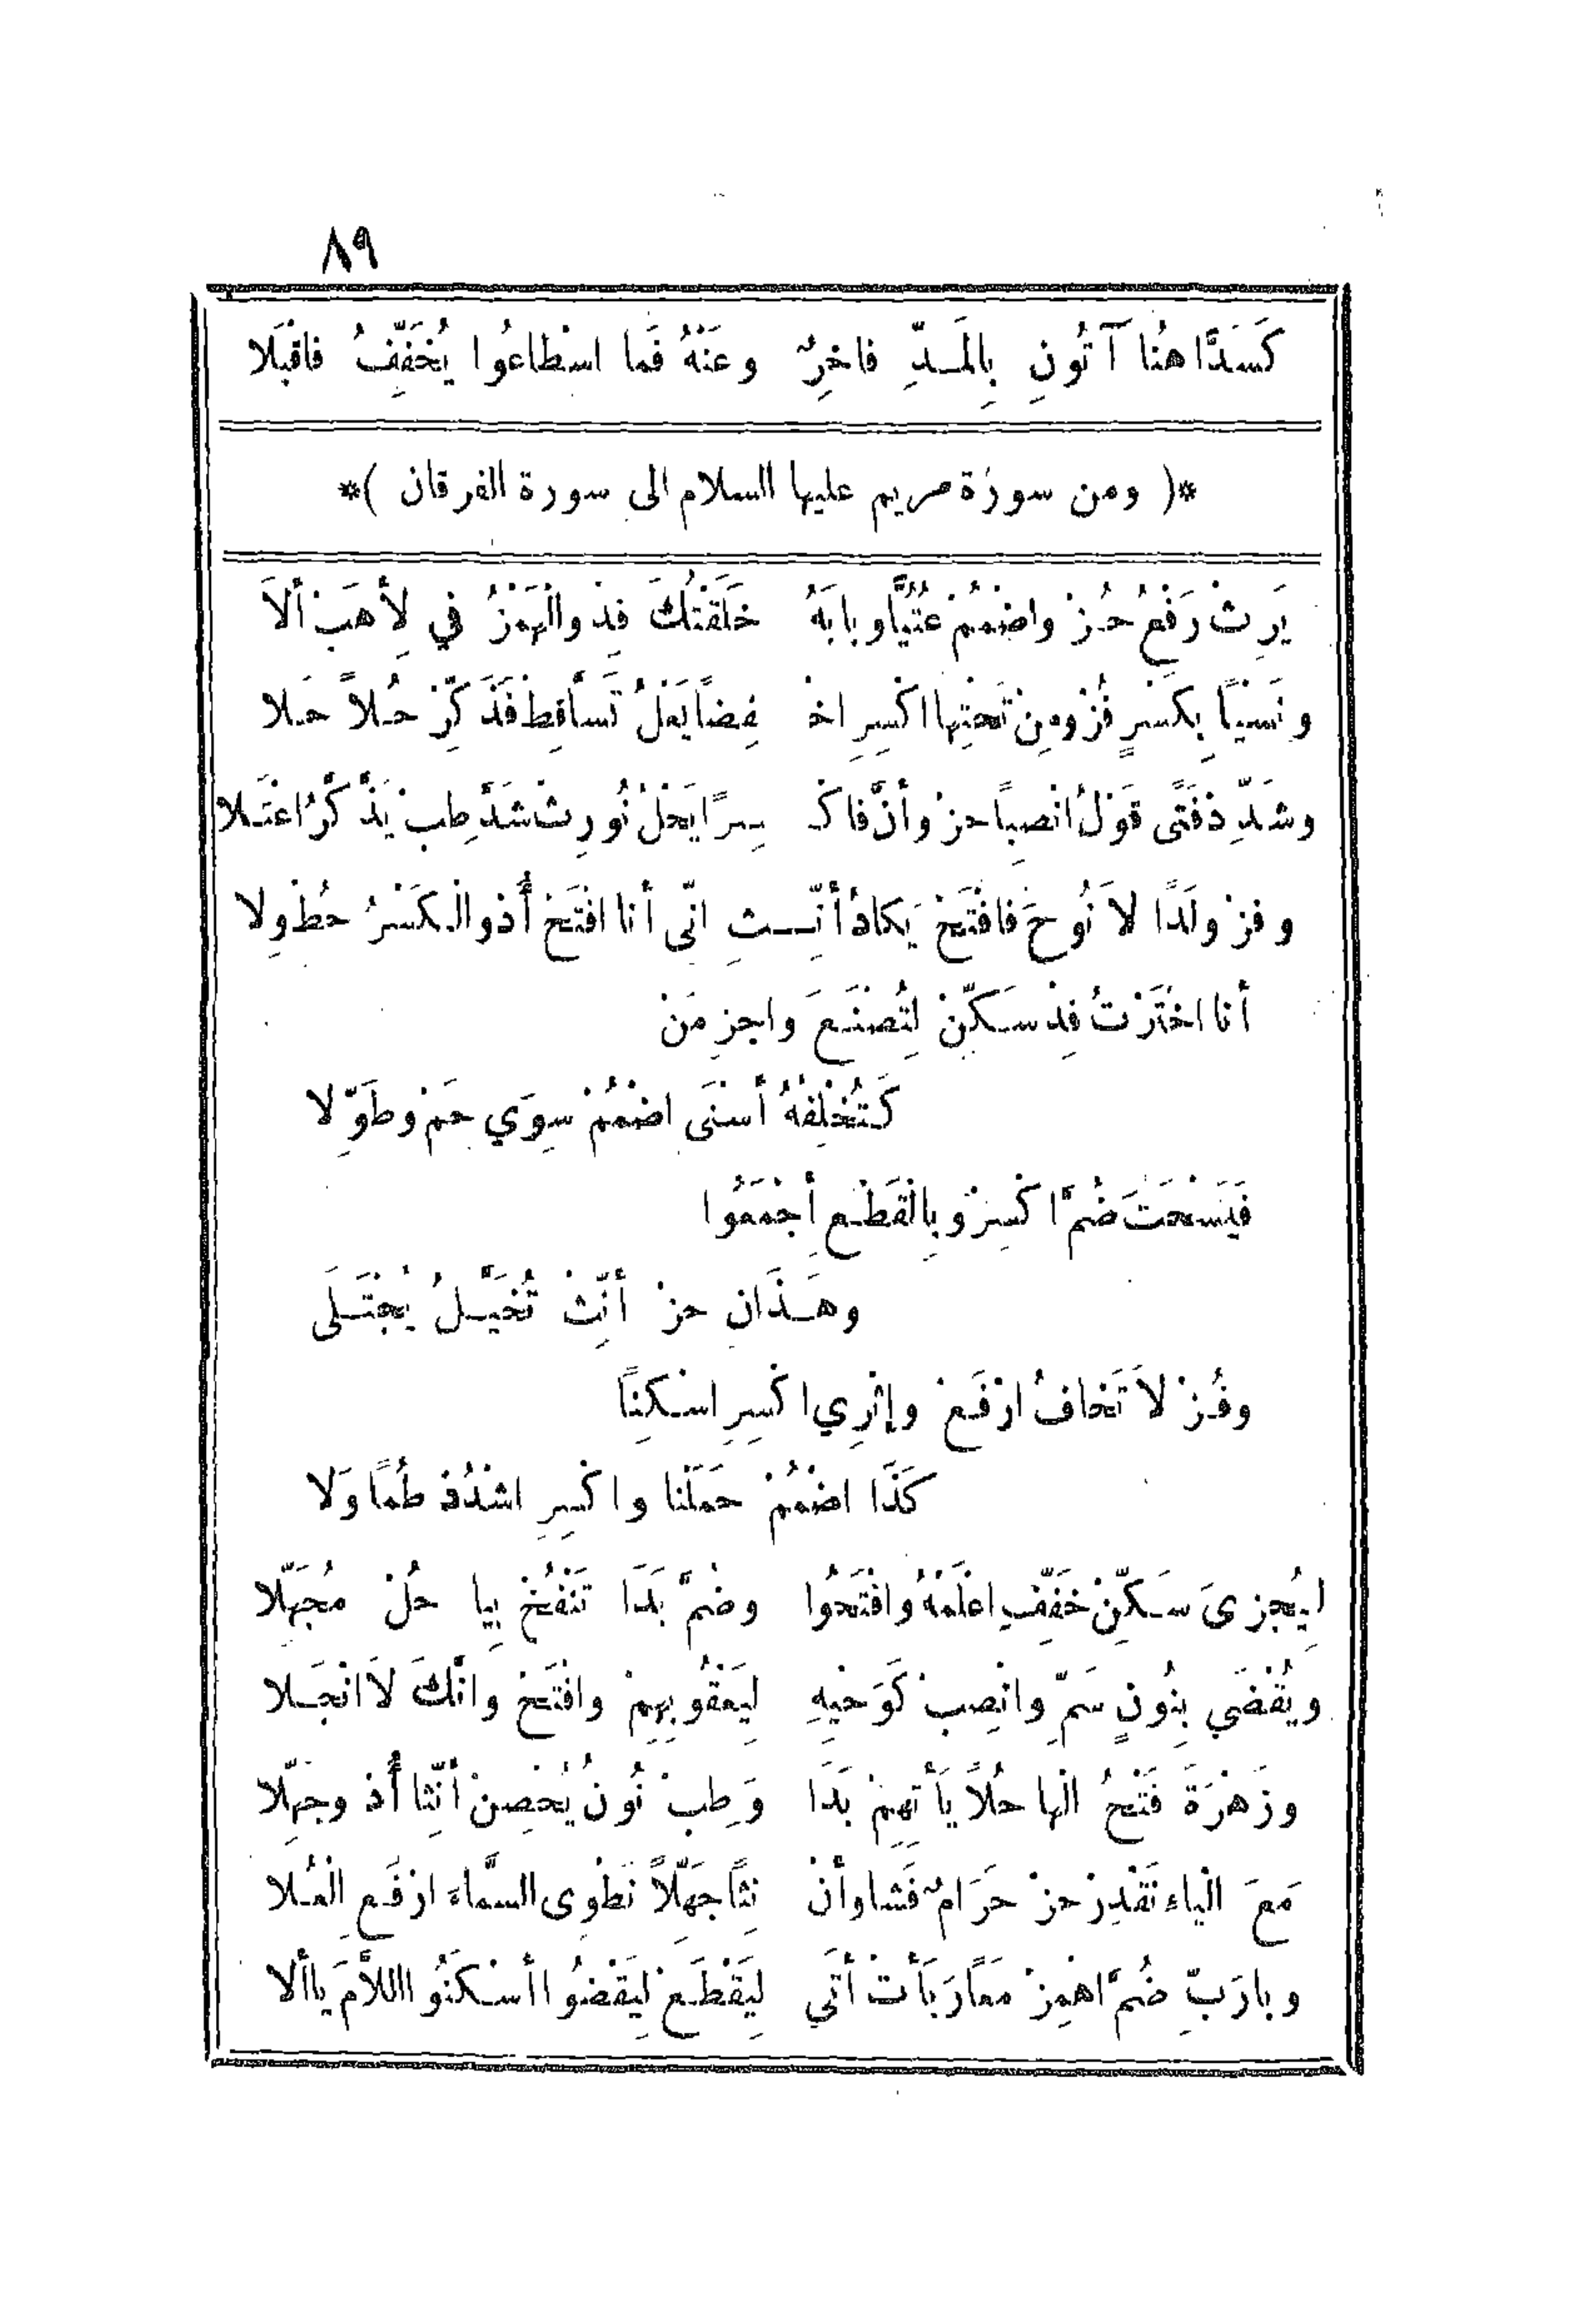 ٨٩
كَسَدًّا هُنَا آتُونِ بِالمَدِّ فاخِرٌ وعَنْهُ فَما اسْطاعُوا يُخَفِّفُ فاقْبَلا
*( ومن سورة مريم عليها السلام الى سورة الفرقان )*
يَرِثْ رَفْعُ حُزْ واضْمُمْ عُتُيًّا وبابَهُ خَلَقْتُكَ فِدْ والْهَمْزُ في لِأَهَبْ أَلَا
ونَسْيًا بِكَسْرٍ فُزْ ومِنْ تَحْتِها اكْسِرِ اخْ فِضًا يَعْلُ تَسَّاقَطْ فَذَكِّرْ حُلًا حَلا
وشَدِّدْ فَتًى قَوْلُ انْصِبًا حزْ وأَنَّ فاكْ سِرًا يَحْلُ نُورِثْ شَدَّ طِبْ يَذْكُرُ اعْتَلا
وفزْ وَلَدًا لَا نُوحَ فافْتَحْ يَكادُ أَنِّثِ انّى أَنا افْتَحْ أُدْ والْكَسْرُ حُطْ ولا
أَنا اخْتَرْتُ فِدْ سَكِّنْ لِتُصْنَعَ واجزِمَنْ
كَتُخْلِفْهُ أَسْنَى اضْمُمْ سِوَي حَمْ وطَوِّلا
فَيَسْحَتَ ضُمَّ اكْسِرْ وبِالْقَطْعِ أَجْمِعُوا
وهَذَانِ حزْ أَنِّثْ تُخَيَّلُ يُجْتَلَى
وفُزْ لَا تَخافُ ارْفَعْ وإِثْرِي اكْسِرِ اسْكِنًا
كَذَا اضْمُمْ حَمَلْنا واكْسِرِ اشْدُدْ طُمًا وَلا
لِيُجزى سَكِّنْ خَفِّفِ اعْلَمْهُ وافْتَحُوا وضُمَّ بَدَا تَنْفُخْ بِيا حُلْ مُجَهَّلا
ويُقْضَي بِنُونٍ سَمِّ وانْصِبْ كَوَحْيِهِ لِيَعْقُوبِهِمْ وافْتَحْ وانَّكَ لَا انْجَلا
وزَهْرَةَ فَتْحُ الْها حُلًا يَأْتِهِمْ بَدَا وَطِبْ نُونُ يُحْصِنْ أَنِّثا أُدْ وجَهِّلا
مَعَ الْياء نَقْدِرْ حزْ حَرَامٌ فَشا وأَنْ نِثًا جَهِّلًا نَطْوِى السَّماءَ ارْفَعِ الْعُلا
وبارَبِّ ضُمَّ اهْمِزْ مَعًا رَبَأَتْ أَتَي لِيَقْطَعْ لِيَقْضُوا أَسْكَنُوا اللَّامَ يا أَلا